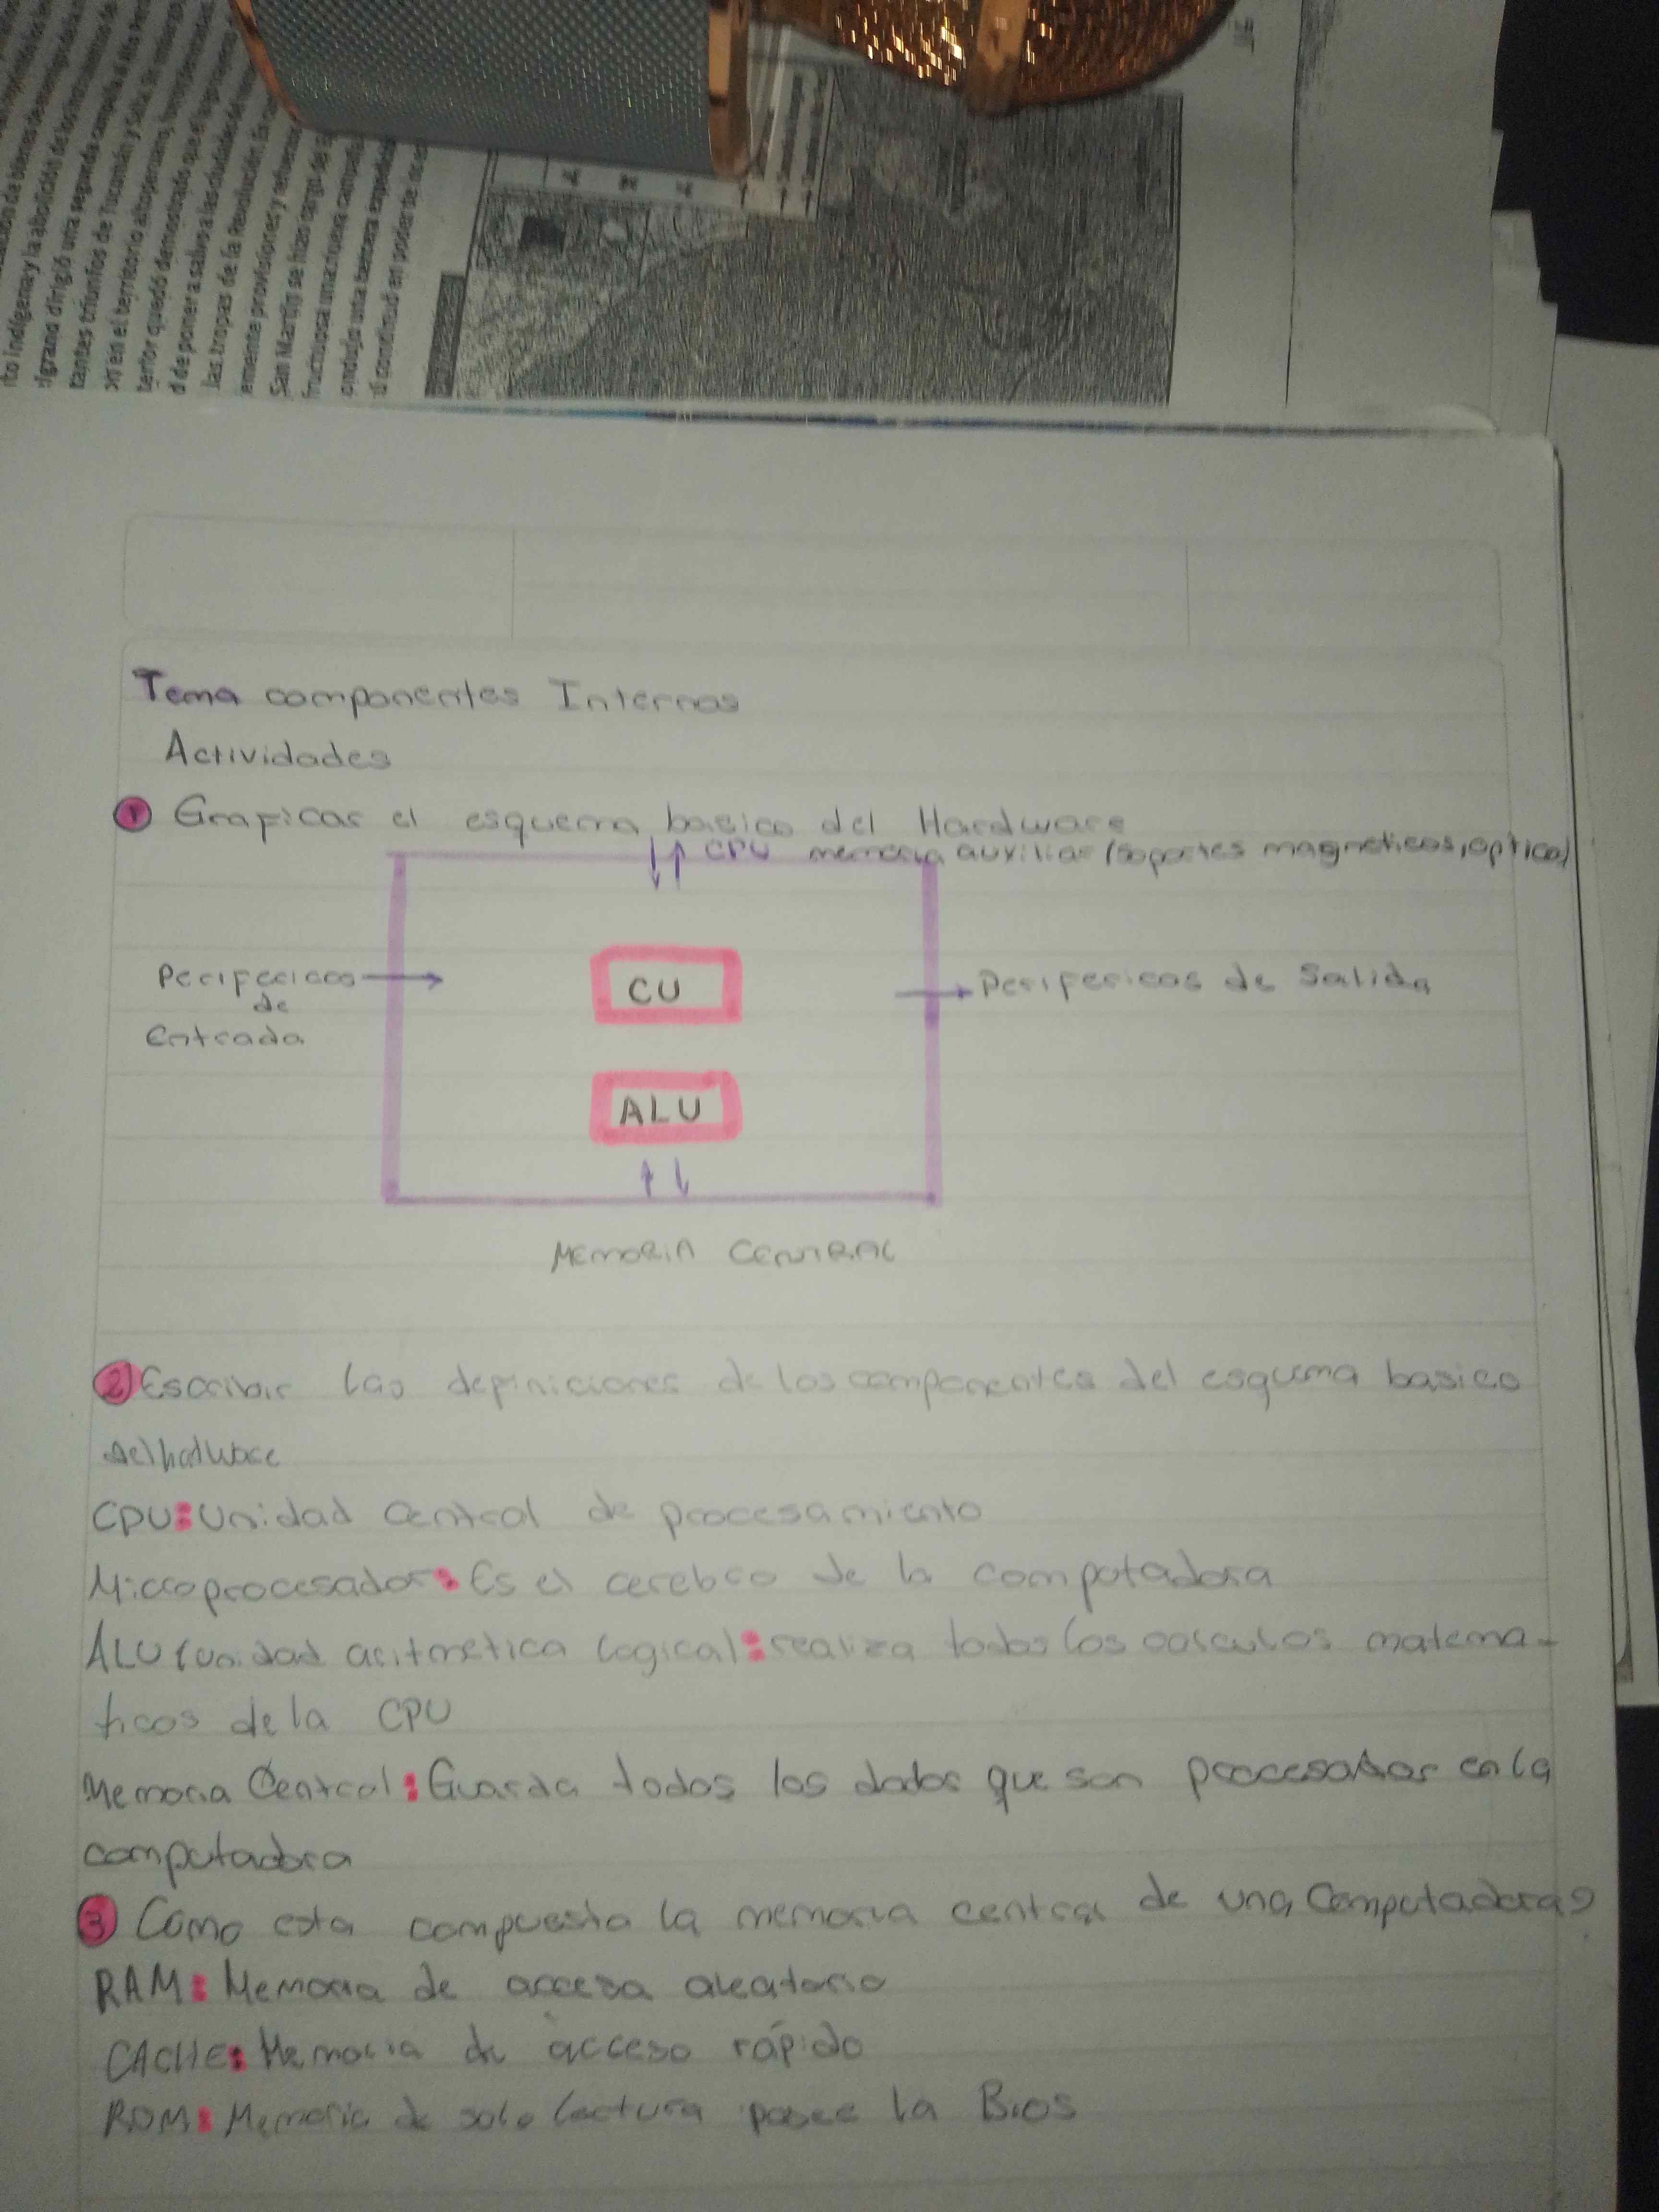 rto indígena y la abolición de
lgrano dirigió una segunda campaña al Alto
tantes triunfos de Tucumán y Salta. Sin
en el territorio altoperuano,
terior quedó demostrado que el
d de poner a salvo a las ciudades de
las tropas de la Revolución. En
emente provisiones y
San Martín se hizo cargo del
fructuosa una nueva
condujo una tercera
ú continuó en poder de
Tema componentes Internos
Actividades
1 Graficar el esquema basico del Hardware
CPU memoria auxiliar (soportes magneticos, optico)
Perifericos
de
Entrada
CU
Perifericos de Salida
ALU
MEMORIA CENTRAL
2) Escribir las definiciones de los componentes del esquema basico
del hadware
CPU: Unidad Central de procesamiento
Microprocesador: Es el cerebro de la computadora
ALU (unidad aritmetica logica): realiza todos los calculos matema-
ticos de la CPU
Memoria Central: Guarda todos los datos que son procesados en la
computadora
3 Como esta compuesta la memoria central de una Computadora?
RAM: Memoria de acceso aleatorio
CACHE: Memoria de acceso rápido
ROM: Memoria de solo lectura posee la Bios